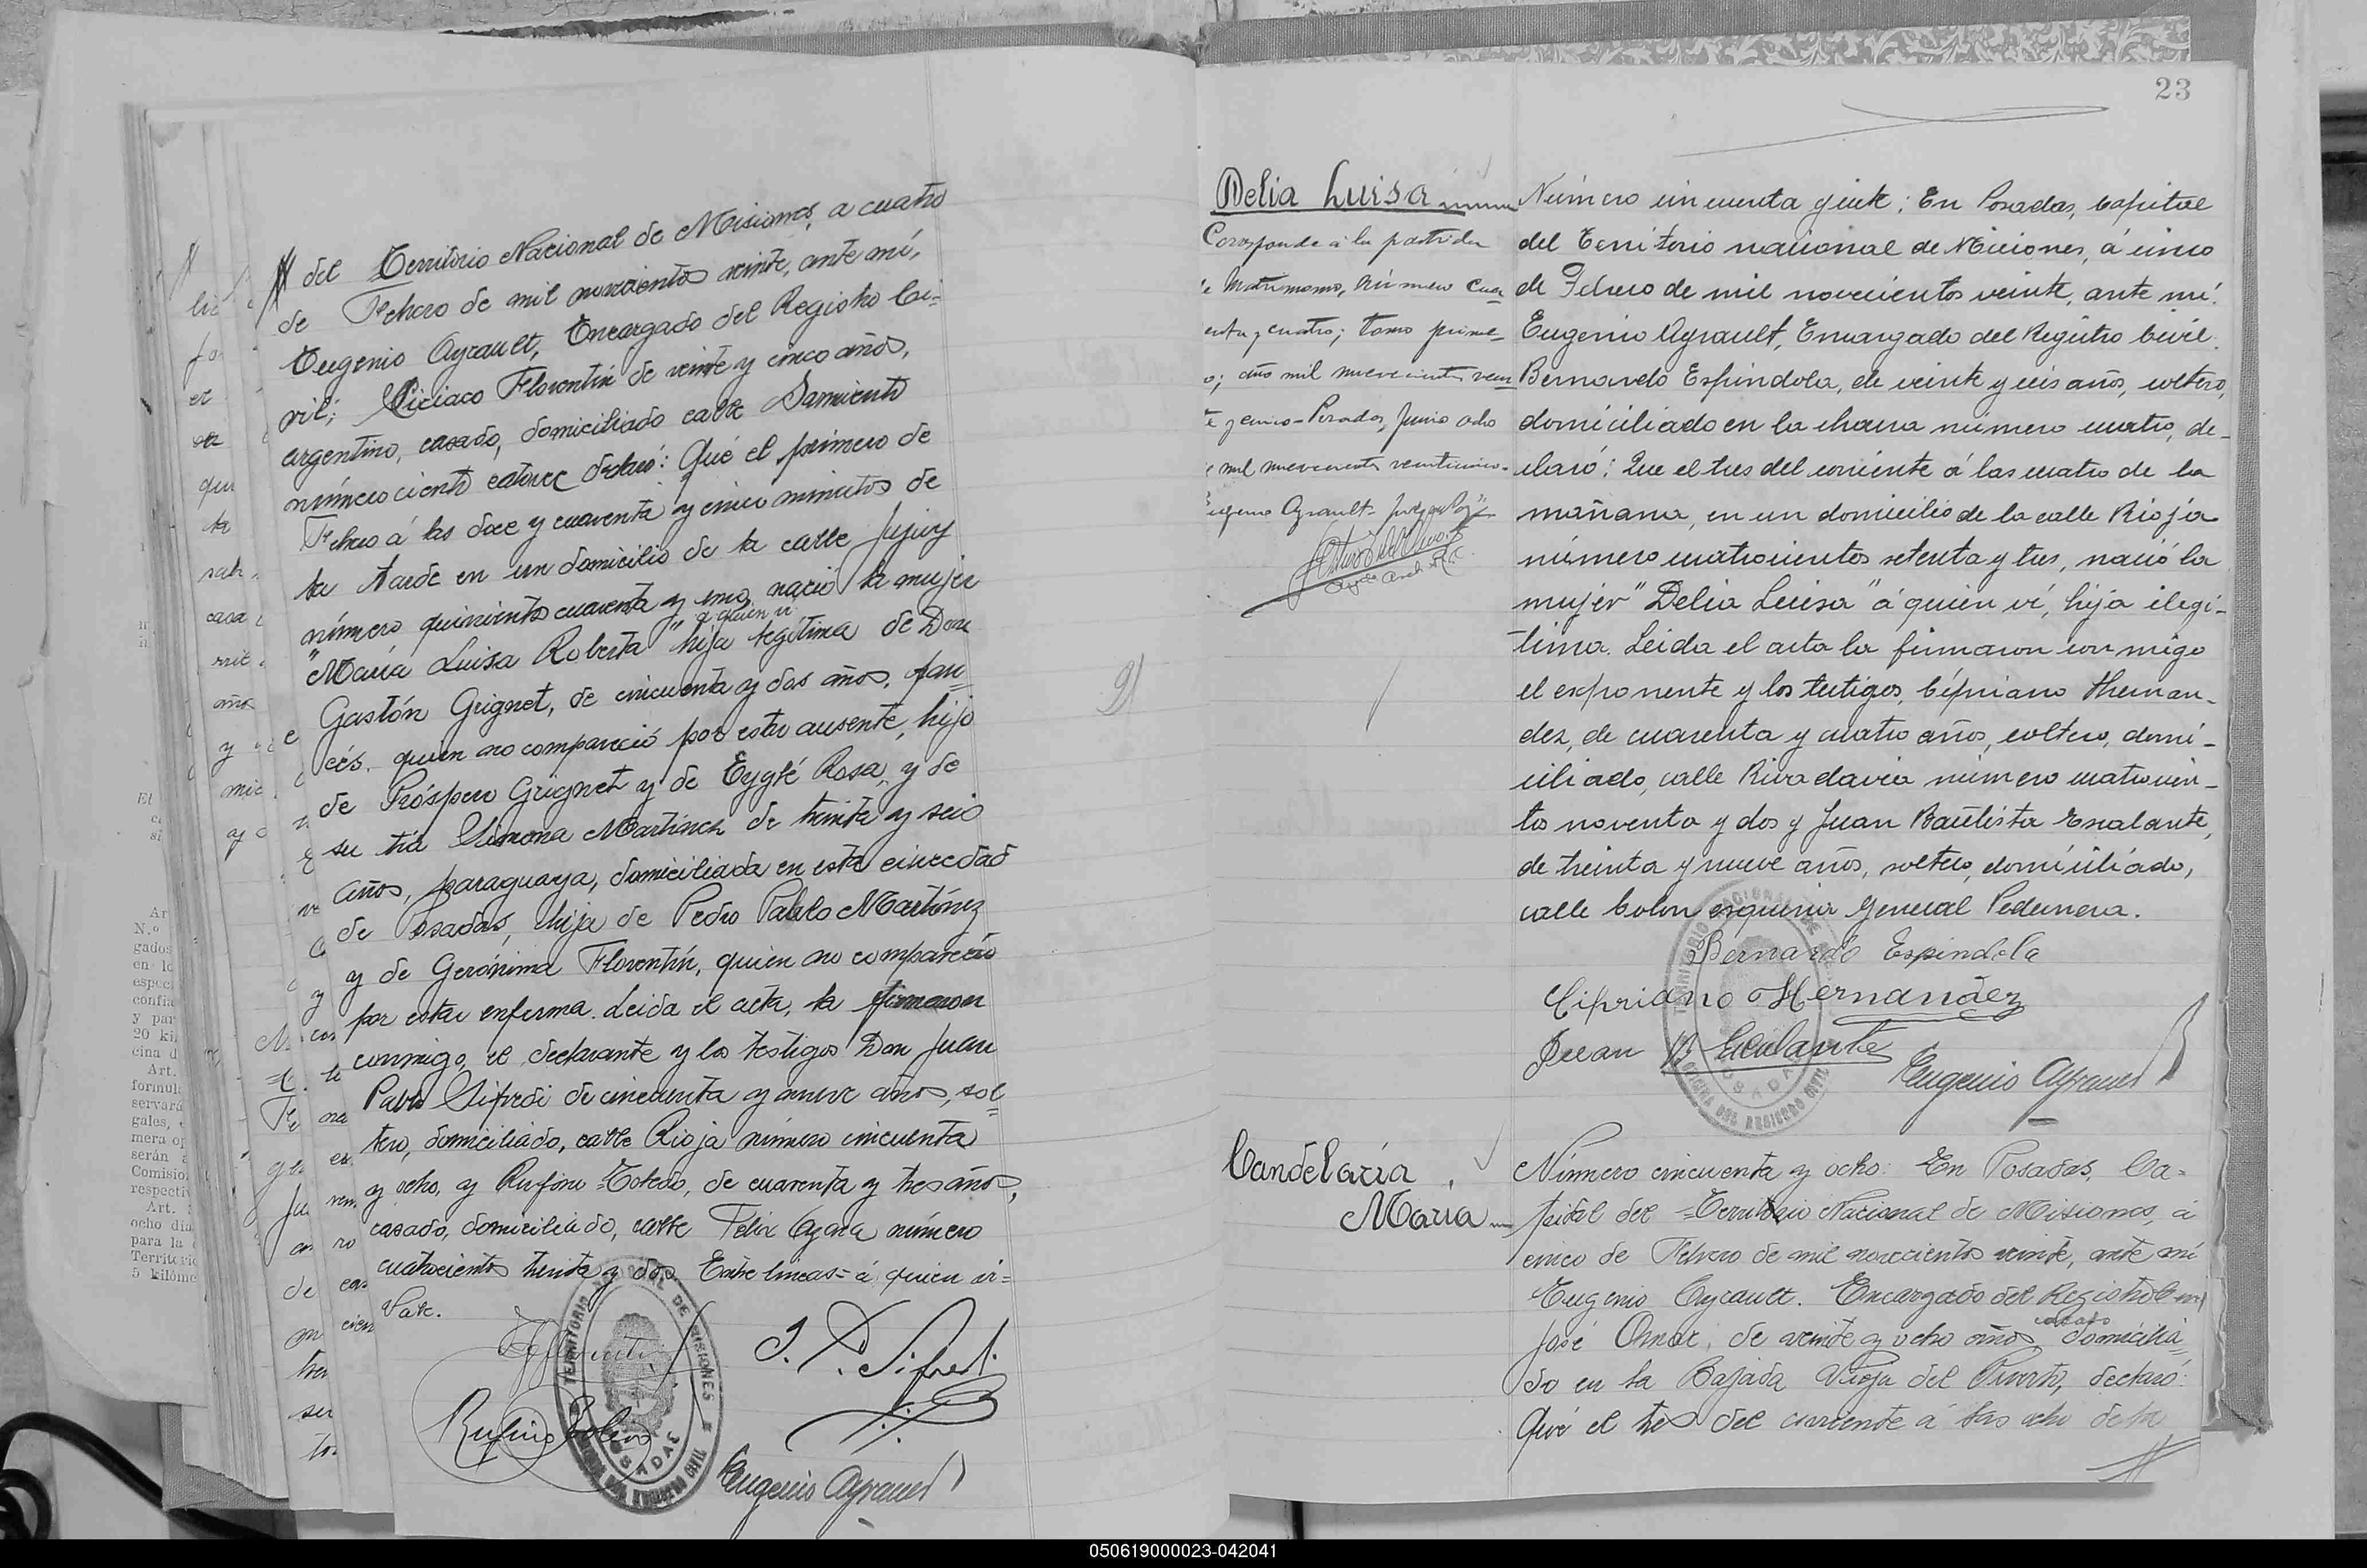 del Territorio Nacional de Misiones, a cuatro
de Febrero de mil novecientos veinte, ante mí,
Eugenio Ayrault, Encargado del Registro Ci=
vil; Ciriaco Florentín de veinte y cinco años,
argentino, casado, domiciliado calle Sarmiento
número ciento catorce declaró: Qué el primero de
Febrero á las doce y cuarenta y cinco minutos de
la tarde en un domicilio de la calle Jujuy
número quinientos cuarenta y uno, nació la mujer
"María Luisa Roberta" a quien vi hija legítima de Don
Gastón Grignet, de cincuenta y dos años, fran=
cés, quien no compareció por estar ausente, hijo
de Próspero Grignet y de Eyglé Rosa, y de
su tía Simona Martínez de treinta y seis
años, paraguaya, domiciliada en esta ciudad
de Posadas, hija de Pedro Pablo Martínez
y de Gerónima Florentín, quien no compareció
por estar enferma. Leida el acta, la firmaron
conmigo, el declarante y los testigos Don Juan
Pablo Sifredi de cincuenta y nueve años, sol=
tero, domiciliado, calle Rioja número cincuenta
y ocho, y Rufino Toledo, de cuarenta y tres años,
casado, domiciliado, calle Felix Azara número
cuatrocientos treinta y dos. Entre lineas = á quien vi =
Vale.
J. P. Sifredi
Rufino Toledo
Eugenio Ayrault
TERRITORIO NACIONAL DE MISIONES
OFICINA DEL REGISTRO CIVIL
POSADAS
23
Delia Luisa
Corresponde á la partida
de Matrimonio, número cua
renta y cuatro; tomo prime-
ro; año mil nuevecientos vein
te y cinco - Posadas, Junio ocho
de mil nuevecientos veinticinco -
Eugenio Ayrault -
Número cincuenta y siete: En Posadas, capital
del Territorio nacional de Misiones, á cinco
de Febrero de mil novecientos veinte, ante mí.
Eugenio Ayrault, Encargado del Registro Civil.
Bernardo Espindola, de veinte y seis años, soltero,
domiciliado en la chacra número cuatro, de-
claró: Que el tres del corriente á las cuatro de la
mañana, en un domicilio de la calle Rioja
número cuatrocientos setenta y tres, nació la
mujer "Delia Luisa" á quien ví, hija ilegí-
tima. Leida el acta la firmaron con migo
el exponente y los testigos, Cipriano Hernan-
dez, de cuarenta y cuatro años, soltero, domi-
ciliado, calle Rivadavia número cuatrocien-
tos noventa y dos y Juan Bautista Escalante,
de treinta y nueve años, soltero, domiciliado,
calle Colon esquina General Pedernera.
Bernardo Espindola
Cipriano Hernandez
Juan B Escalante
Eugenio Ayrault
TERRITORIO NACIONAL DE MISIONES
OFICINA DEL REGISTRO CIVIL
POSADAS
Candelaria
Maria
Número cincuenta y ocho: En Posadas, Ca=
pital del Territorio Nacional de Misiones, á
cinco de Febrero de mil novecientos veinte, ante mí
Eugenio Ayrault. Encargado del Registro Civil
José Omar, de veinte y ocho años casado domicilia=
do en la Bajada Vieja del Puerto, declaró:
Qué el tres del corriente á las ocho de la
050619000023-042041